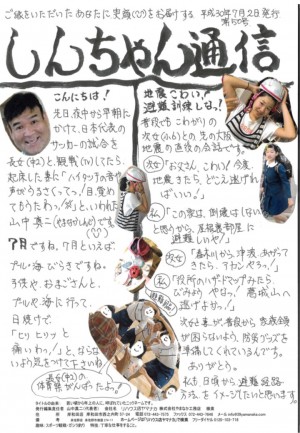 ご縁をいただいたあなたに笑顔(ﾆｺ)をお届けする 平成30年7月2日発行
第50号
しんちゃん通信
こんにちは!
先日、夜中から早朝に
かけて、日本代表の
サッカーの試合を
長女(中2)と、観戦(TV)してたら、
起床した妻に「ハイタッチの音や
声がうるさくてっ。目、覚め
てもうたわっ!笑」と、いわれた
山中真二(やまなかしんじ)です
7月ですね。7月といえば、
プール・海びらきですね。
子供や、おまごさんと、
プールや海に行って、
日焼けで、
「ヒリヒリッと
痛いわっ。」と、ならな
いよう気をつけて下さい。
長女(中2)の
体育祭、がんばったよ。
地震こわい!
避難訓練しな!
普段でもこわがりの
次女(小6)との先の大阪
地震の直後の会話です。
次女「お父さん、こわい!今度
地震きたら、どこへ逃げれば
いい?」
私「この家は、倒壊は(しない)
と思うから、屋根裏部屋に
避難しいや!」
次女「春木川から、津波、あがって
きたら、アカンやろっ?」
私「役所のハザードマップみたら
びみょう やなっ。葛城山へ
逃げよかっ?」
次女と妻が、普段から家族皆
が困らないよう、防災グッズを
準備してくれているんです。
ありがとう。
私も、日頃から避難経路・
方法を、イメージしたいと思います。